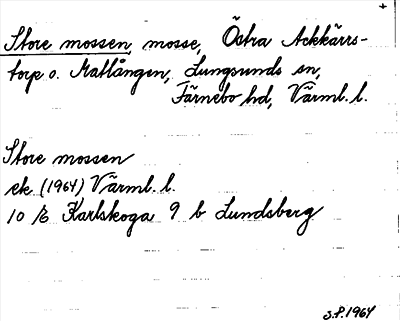 Store mossen, mosse, Östra Ackkärrs-
torp o. Matlången, Lungsunds sn,
Färnebo hd, Värml. l.
Store mossen
ek (1964) Värml. l.
10 /6 Karlskoga 9 b Lundsberg
S.P. 1964